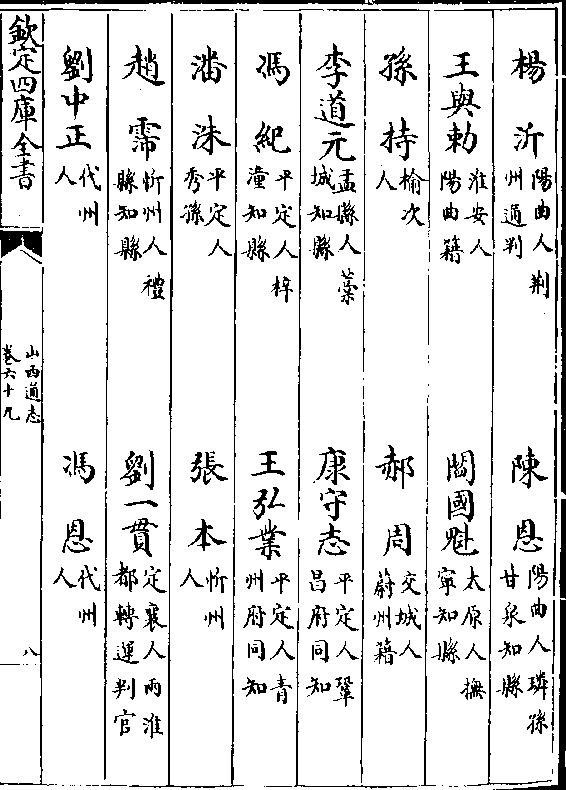 楊沂 陽曲人荆州通判 陳恩 陽曲人璘孫甘泉知縣
王與勅 淮安人陽曲籍 閻國魁 太原人撫寧知縣
孫持 榆次人 郝周 交城人蔚州籍
李道元 盂縣人藁城知縣 康守志 平定人鞏昌府同知
馮紀 平定人梓潼知縣 王弘業 平定人青州府同知
潘洙 平定人秀孫 張本 忻州人
趙霈 忻州人禮縣知縣 劉一貫 定襄人兩淮都轉運判官
劉中正 代州人 馮恩 代州人
欽定四庫全書 山西通志卷六十九 八